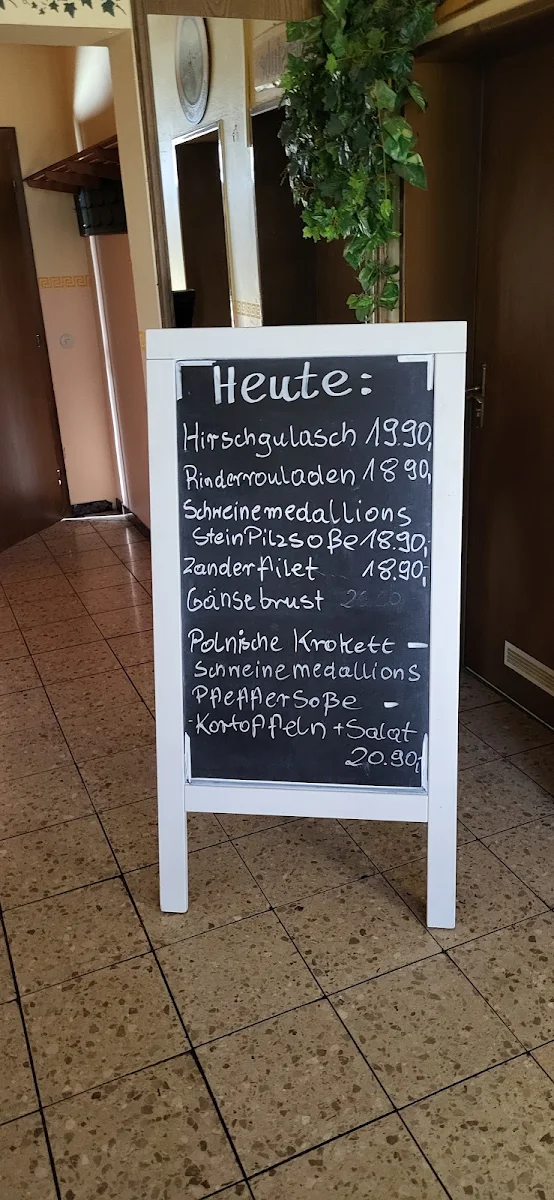 Heute:
Hirschgulasch 19.90,
Rinderrouladen 18 90,
Schweinemedallions
SteinPilzsoße 18.90,-
Zanderfilet 18.90,-
Gänsebrust
Polnische Krokett -
Schweinemedallions
PfeffferSoße -
-Kartoffeln + Salat
20.90,-